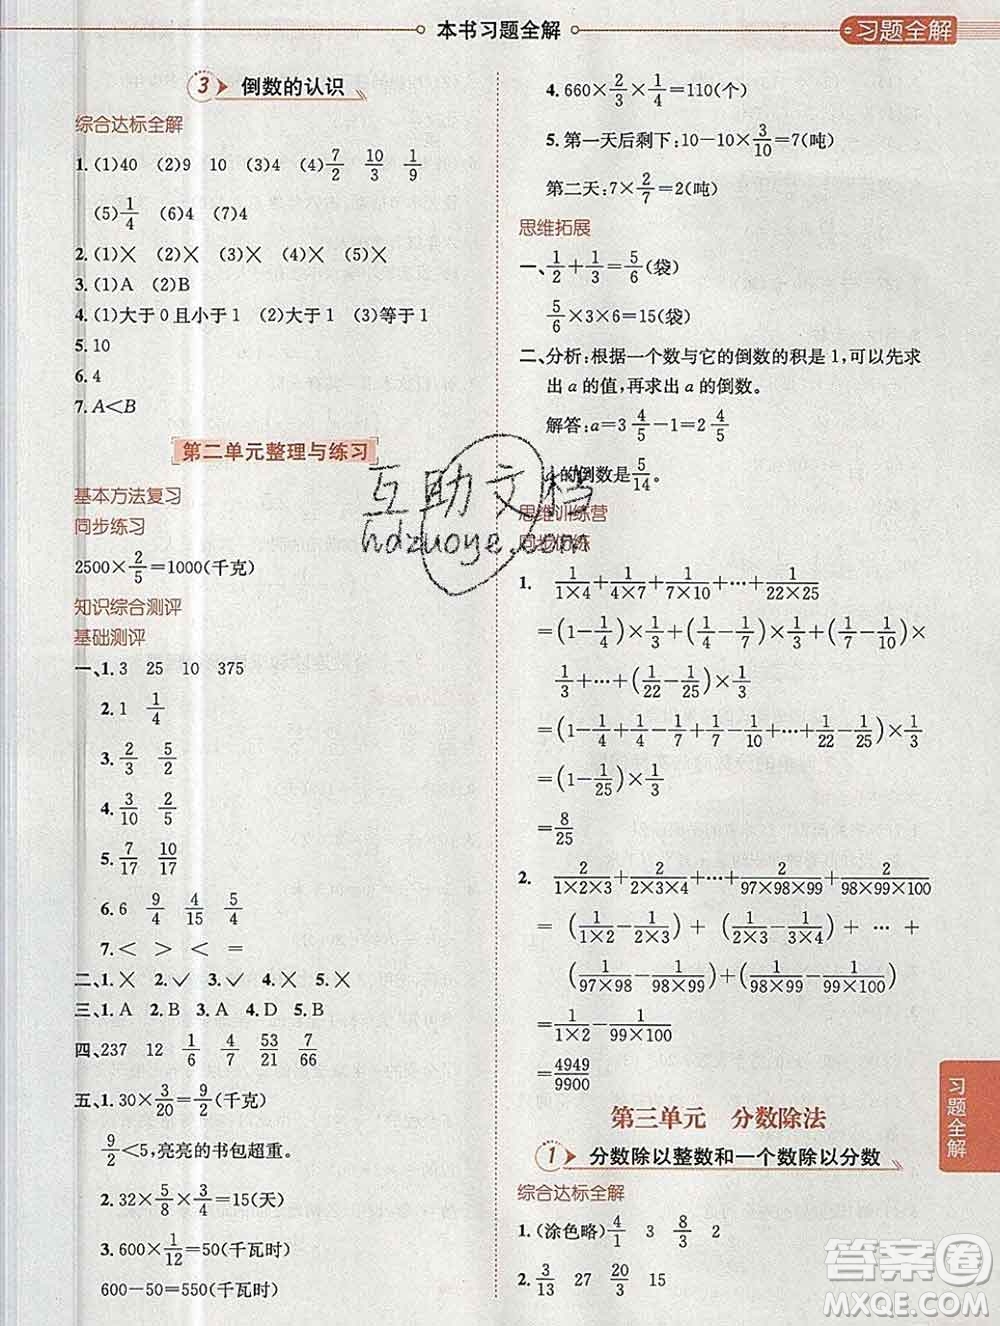 本书习题全解
习题全解
3 倒数的认识
综合达标全解
1. (1)40 (2)9 10 (3)4 (4)7/2 10/3 1/9
(5)1/4 (6)4 (7)4
2. (1)× (2)× (3)× (4)× (5)×
3. (1)A (2)B
4. (1)大于0且小于1 (2)大于1 (3)等于1
5. 10
6. 4
7. A<B
第二单元整理与练习
基本方法复习
同步练习
2500×2/5=1000(千克)
知识综合测评
基础测评
一、1. 3 25 10 375
2. 1 1/4
3. 2/3 5/2
4. 3/10 5/2
5. 7/17 10/17
6. 6 9/4 4/15 5/9
7. < > < =
二、1. × 2. ✓ 3. ✓ 4. × 5. ×
三、1. A 2. B 3. A 4. D 5. B
四、237 12 1/6 4/7 53/21 7/66
五、1. 30×3/20=9/2(千克)
9/2<5,亮亮的书包超重。
2. 32×5/8×3/4=15(天)
3. 600×1/12=50(千瓦时)
600-50=550(千瓦时)
4. 660×2/3×1/4=110(个)
5. 第一天后剩下:10-10×3/10=7(吨)
第二天:7×2/7=2(吨)
思维拓展
一、1/2+1/3=5/6(袋)
5/6×3×6=15(袋)
二、分析:根据一个数与它的倒数的积是1,可以先求
出a的值,再求出a的倒数。
解答:a=3 4/5-1=2 4/5
的倒数是5/14。
思维训练营
1. 1/(1×4)+1/(4×7)+1/(7×10)+…+1/(22×25)
=(1-1/4)×1/3+(1/4-1/7)×1/3+(1/7-1/10)×
1/3+…+(1/22-1/25)×1/3
=(1-1/4+1/4-1/7+1/7-1/10+…+1/22-1/25)×1/3
=(1-1/25)×1/3
=8/25
2. 2/(1×2×3)+2/(2×3×4)+…+2/(97×98×99)+2/(98×99×100)
=(1/(1×2)-1/(2×3))+(1/(2×3)-1/(3×4))+…+
(1/(97×98)-1/(98×99))+(1/(98×99)-1/(99×100))
=1/(1×2)-1/(99×100)
=4949/9900
第三单元 分数除法
1 分数除以整数和一个数除以分数
综合达标全解
1. (涂色略)4/1 3 8/3 2
2. 3/13 27 20/3 15
习题全解
互助文档
hdzuoye.com
答案圈
MXQE.COM